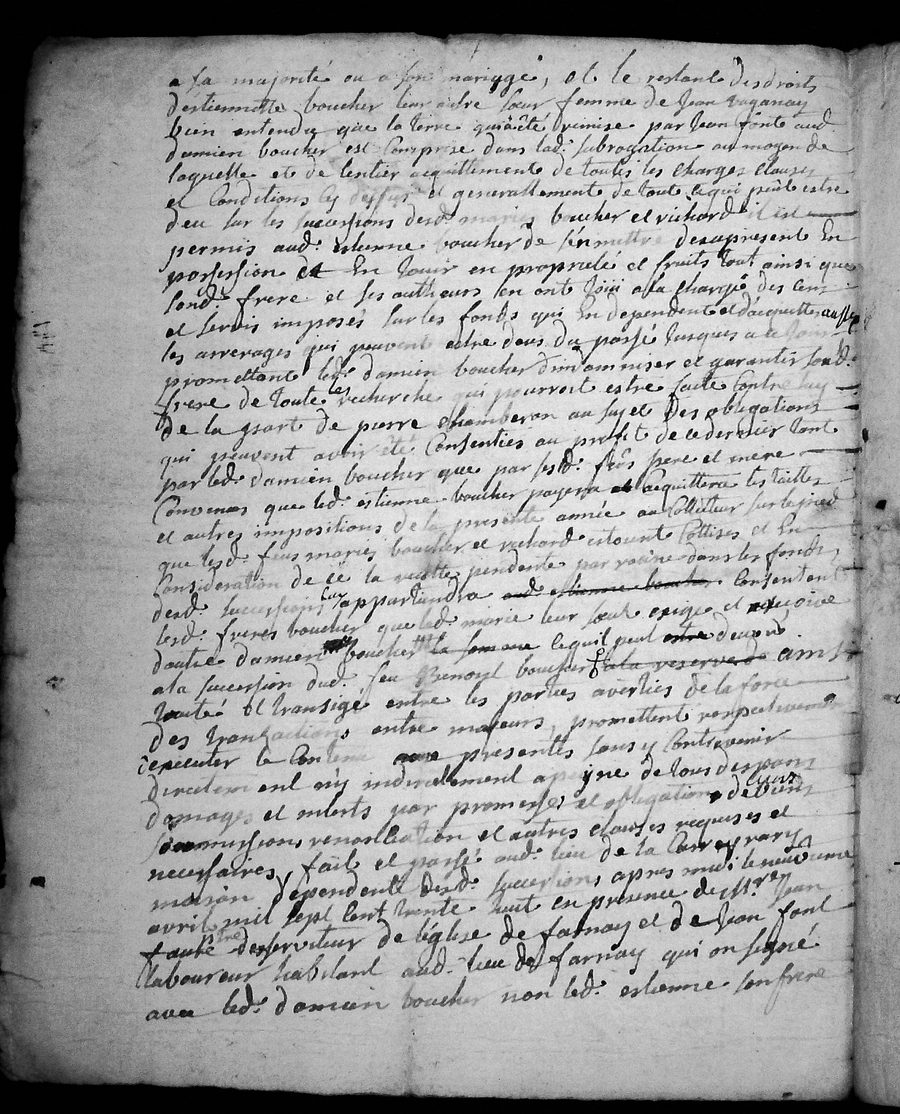 a sa majorité ou a son mariyge, et le restant des droits
destiennette boucher leur autre sœur femme de Jean vaganay
bien entendu que la terre qui a été remise par Jean font aud.
damien boucher est Comprise dans lad. subrogation au moyen de
laquelle et de lentier acquittement de toutes les charges clauses
et Conditions cy dessus et generallement de toute ce qui peut estre
deu sur les successions desd. maries boucher et richard il est
permis aud. estienne boucher de sen mettre des apresent En
possession et En Jouir en proprieté et fruits tout ainsi que
sond. frere et ses autheurs en ont Joüi a la charge des Cens
et servis imposés sur les fonds qui En dependent et d'acquitter aussy
les arrerages qui peuvent estre deus du passé Jusques a ce Jour
promettant led. damien boucher dindamniser et garantir sond.
frere de toute les recherche qui pourroit estre faite Contre luy
de la part de pierre Chamberon au sujet Des obligations
qui peuvent avoir été Consenties au profit de ce dernier tant
par led. damien boucher que par sesd. feus pere et mere
Convenus que led. estienne boucher payera et acquittera les tailles
et autres impositions de la presente année au Collecteur sur le pied
que lesd. feus maries boucher et richard estoient Cottises et En
Consideration de ce la recolte pendente par racine dans les fonds
desd. successions luy appartiendra aud. estienne boucher Consentent
lesd. freres boucher que led. marie leur sœur exige et reçoive
dautre damien boucher la somme ce quil peut estre devoir
a la succession dud. feu Benoist boucher a la reserve de ainsi
traité et transigé entre les parties averties de la force
des transactions entre majeurs, promettent respectivement
executer le Contenu aux presentes sans y Contrevenir
directement ny indirectement a peyne de tous despans
domages et interts par promesses et obligation de leurs biens
soumissions renonciation et autres clauses requises et
necessaires, fait et passé aud. lieu de la Carreyrary
maison dependente desd. successions apres midi le neufvieme
avril mil sept Cent trente huit en presence de Mre. Jean
faure ptre desserviteur de léglise de farnay et de Jean font
laboureur habitant aud. lieu de farnay qui on signé
avec led. damien boucher non led. estienne son frere